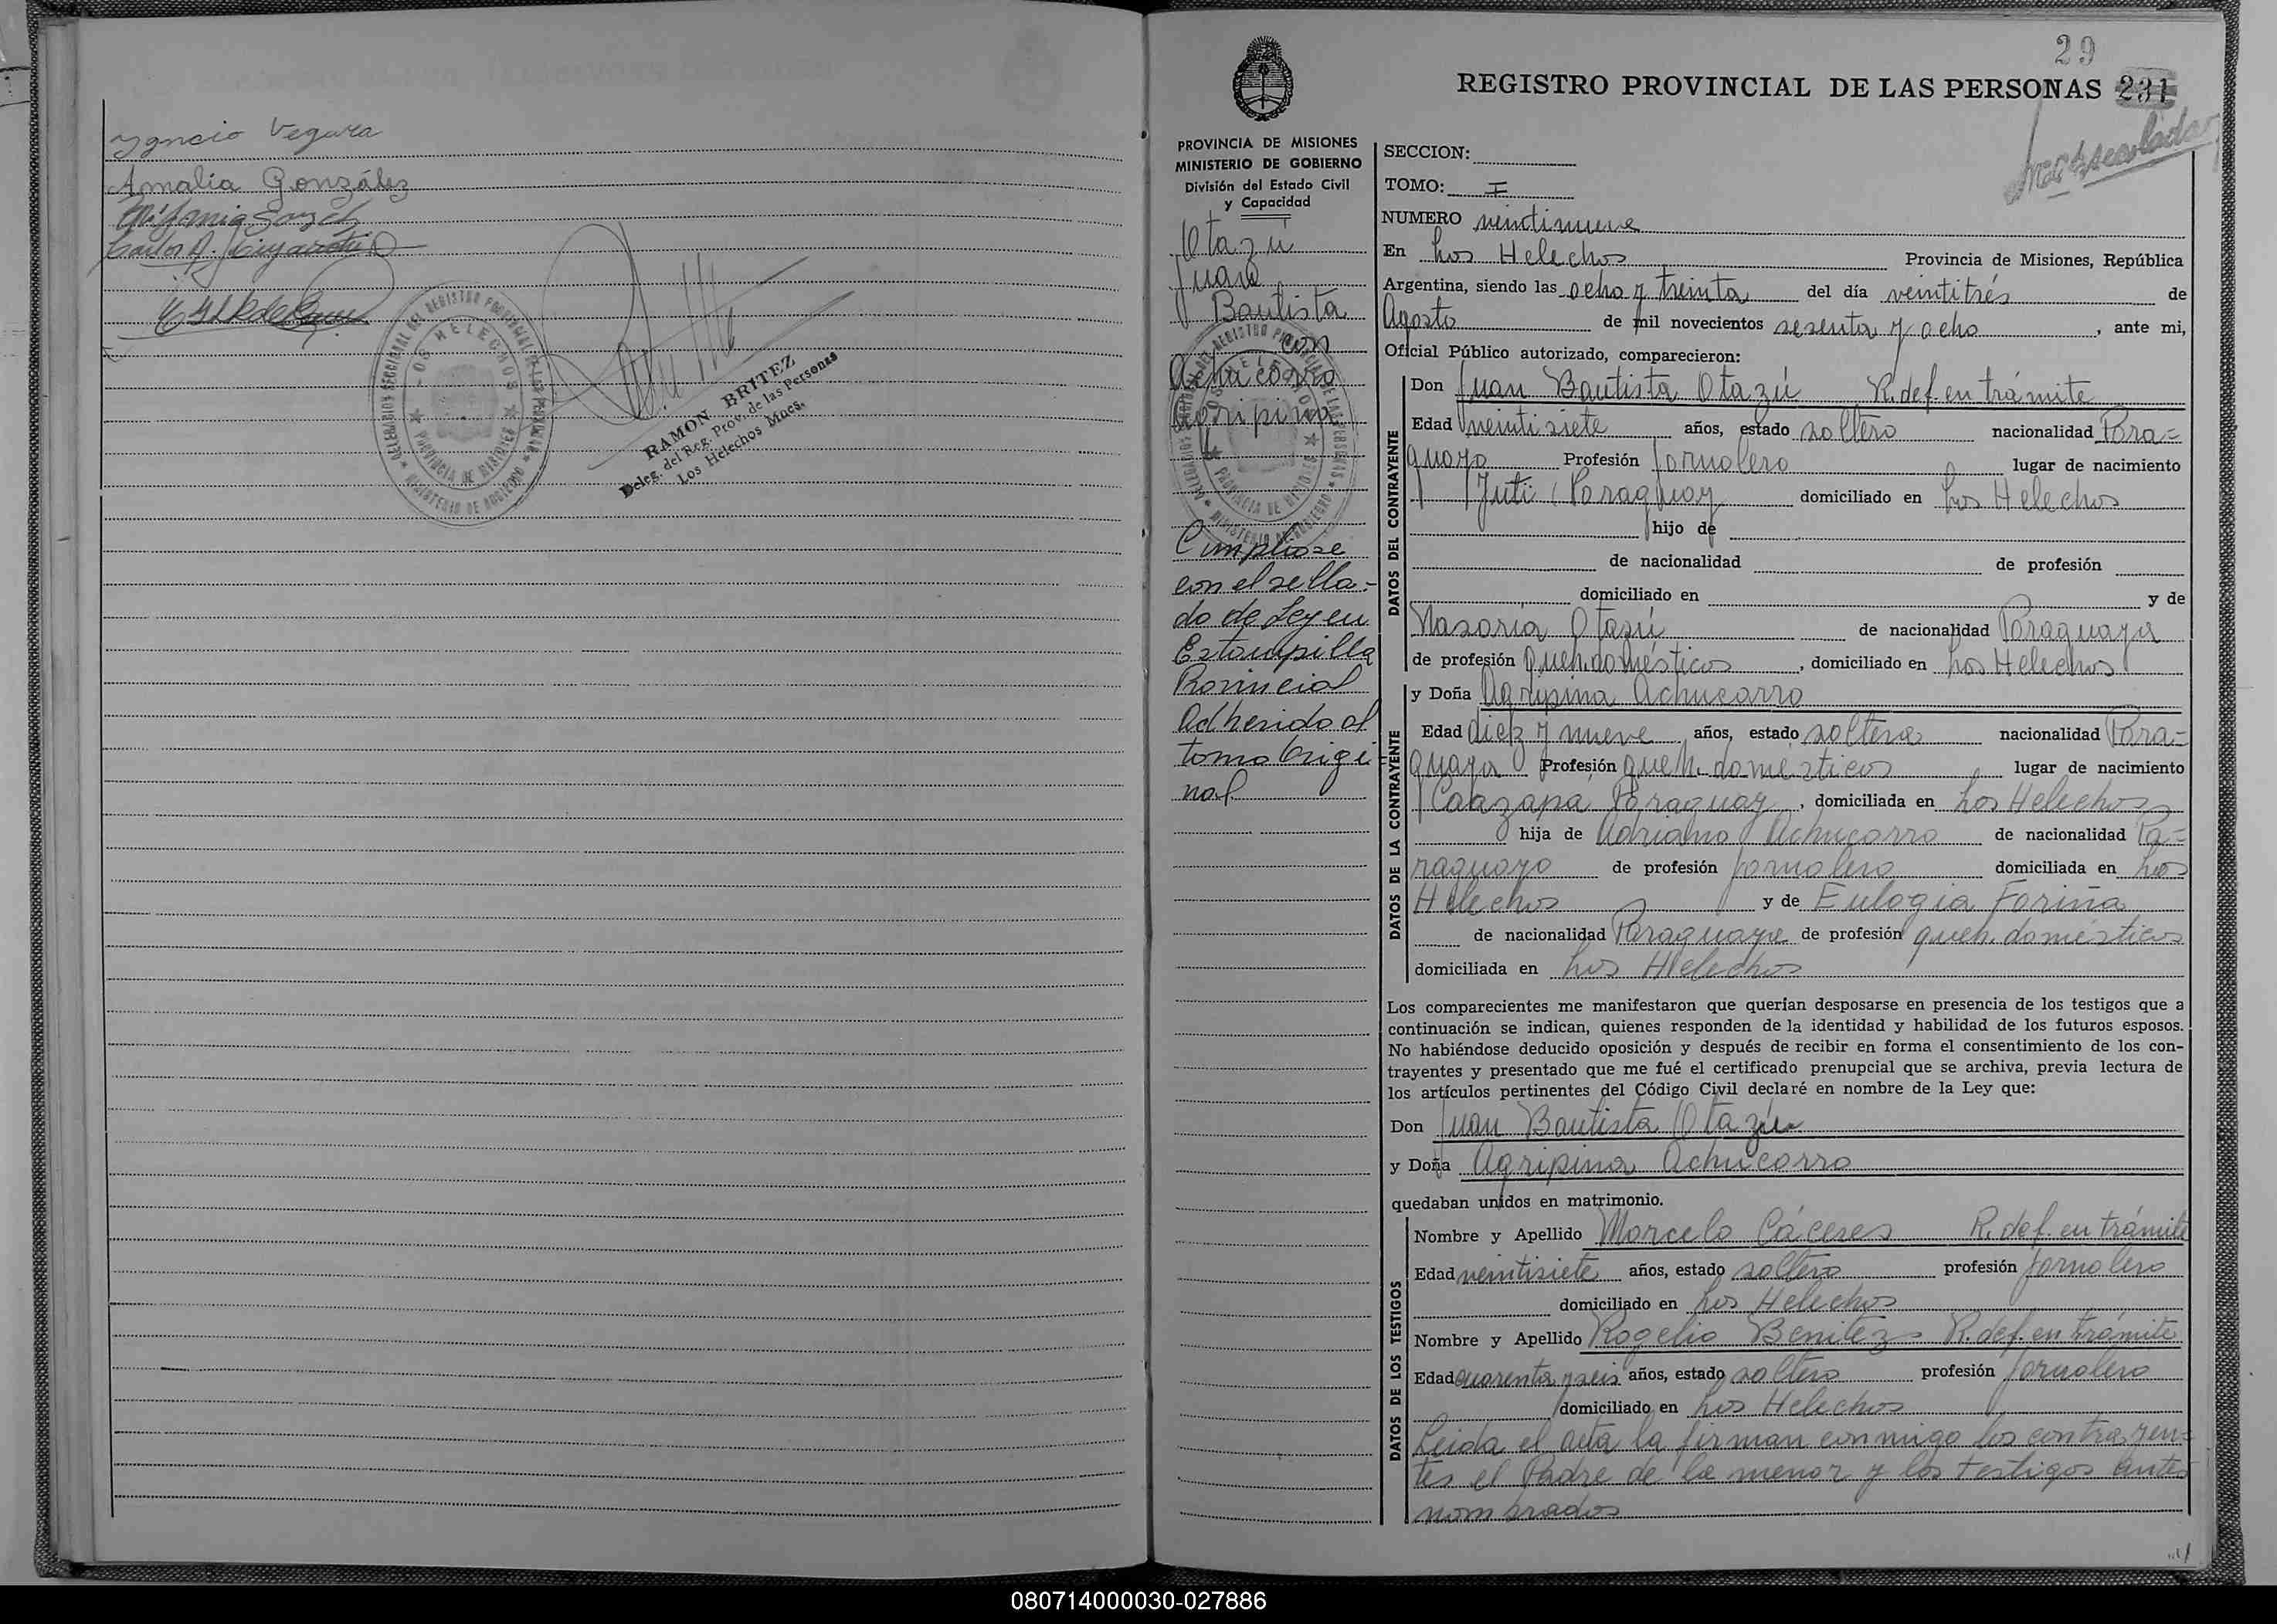 Ygnacio Vegara
Amalia González
RAMON BRITEZ
Deleg. del Reg. Prov. de las Personas
Los Helechos Mnes.
29
REGISTRO PROVINCIAL DE LAS PERSONAS 231
PROVINCIA DE MISIONES
MINISTERIO DE GOBIERNO
División del Estado Civil
y Capacidad
Otazú
Juan
Bautista
con
Achucarro
Agripina
Cumpliose
con el sella-
do de Ley en
Estampilla
Provincial
Adherido al
tomo Origi-
nal.
SECCION:
TOMO: I
NUMERO veintinueve
En Los Helechos Provincia de Misiones, República
Argentina, siendo las ocho y treinta del día veintitrés de
Agosto de mil novecientos sesenta y ocho, ante mi,
Oficial Público autorizado, comparecieron:
DATOS DEL CONTRAYENTE
Don Juan Bautista Otazú R. def. en trámite
Edad veintisiete años, estado soltero nacionalidad Para=
guayo Profesión Jornalero lugar de nacimiento
Yuti (Paraguay domiciliado en Los Helechos
hijo de
de nacionalidad de profesión
domiciliado en y de
Nasaria Otazú de nacionalidad Paraguaya
de profesión Queh. domésticos, domiciliado en Los Helechos
DATOS DE LA CONTRAYENTE
y Doña Agripina Achucarro
Edad diez y nueve años, estado soltera nacionalidad Para=
guaya Profesión queh. domésticos lugar de nacimiento
Caazapá Paraguay, domiciliada en Los Helechos
hija de Adriano Achucarro de nacionalidad Pa=
raguayo de profesión jornalero domiciliada en Los
Helechos y de Eulogia Fariña
de nacionalidad Paraguaya de profesión queh. domésticos
domiciliada en Los Helechos
Los comparecientes me manifestaron que querían desposarse en presencia de los testigos que a
continuación se indican, quienes responden de la identidad y habilidad de los futuros esposos.
No habiéndose deducido oposición y después de recibir en forma el consentimiento de los con-
trayentes y presentado que me fué el certificado prenupcial que se archiva, previa lectura de
los artículos pertinentes del Código Civil declaré en nombre de la Ley que:
Don Juan Bautista Otazú
y Doña Agripina Achucarro
quedaban unidos en matrimonio.
DATOS DE LOS TESTIGOS
Nombre y Apellido Marcelo Cáceres R. def. en trámite
Edad veintisiete años, estado soltero profesión jornalero
domiciliado en Los Helechos
Nombre y Apellido Rogelio Benitez R. def. en trámite
Edad cuarenta y seis años, estado soltero profesión jornalero
domiciliado en Los Helechos
Leida el acta la firman conmigo los contrayen=
tes el Padre de la menor y los testigos antes
nombrados
080714000030-027886